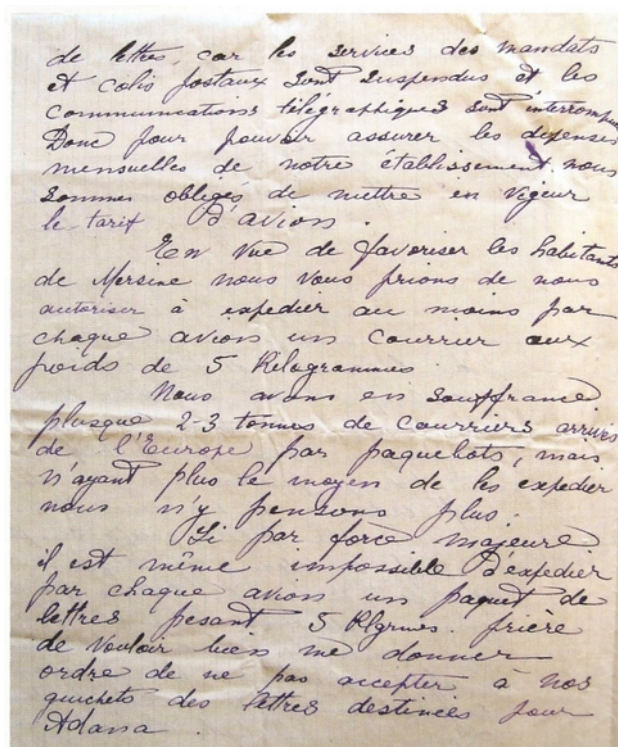 de lettres, car les services des mandats
et colis postaux sont suspendus et les
communications télégraphiques sont interrompues
Donc pour pouvoir assurer les depenses
mensuelles de notre établissement nous
sommes obligés de mettre en vigeur
le tarif d'avion.
En vue de favoriser les habitants
de Mersine nous vous prions de nous
autoriser à expedier au moins par
chaque avion un courrier aux
poids de 5 Kilogrammes
Nous avons en souffrance
plusque 2-3 tonnes de courriers arrivés
de l'Europe par paquebots, mais
n'ayant plus le moyen de les expedier
nous n'y pensons plus.
Si par force majeure
il est même impossible d'expedier
par chaque avion un paquet de
lettres pesant 5 Klgrmes. prière
de vouloir bien me donner
ordre de ne pas accepter à nos
guichets des lettres destinées pour
Adana.